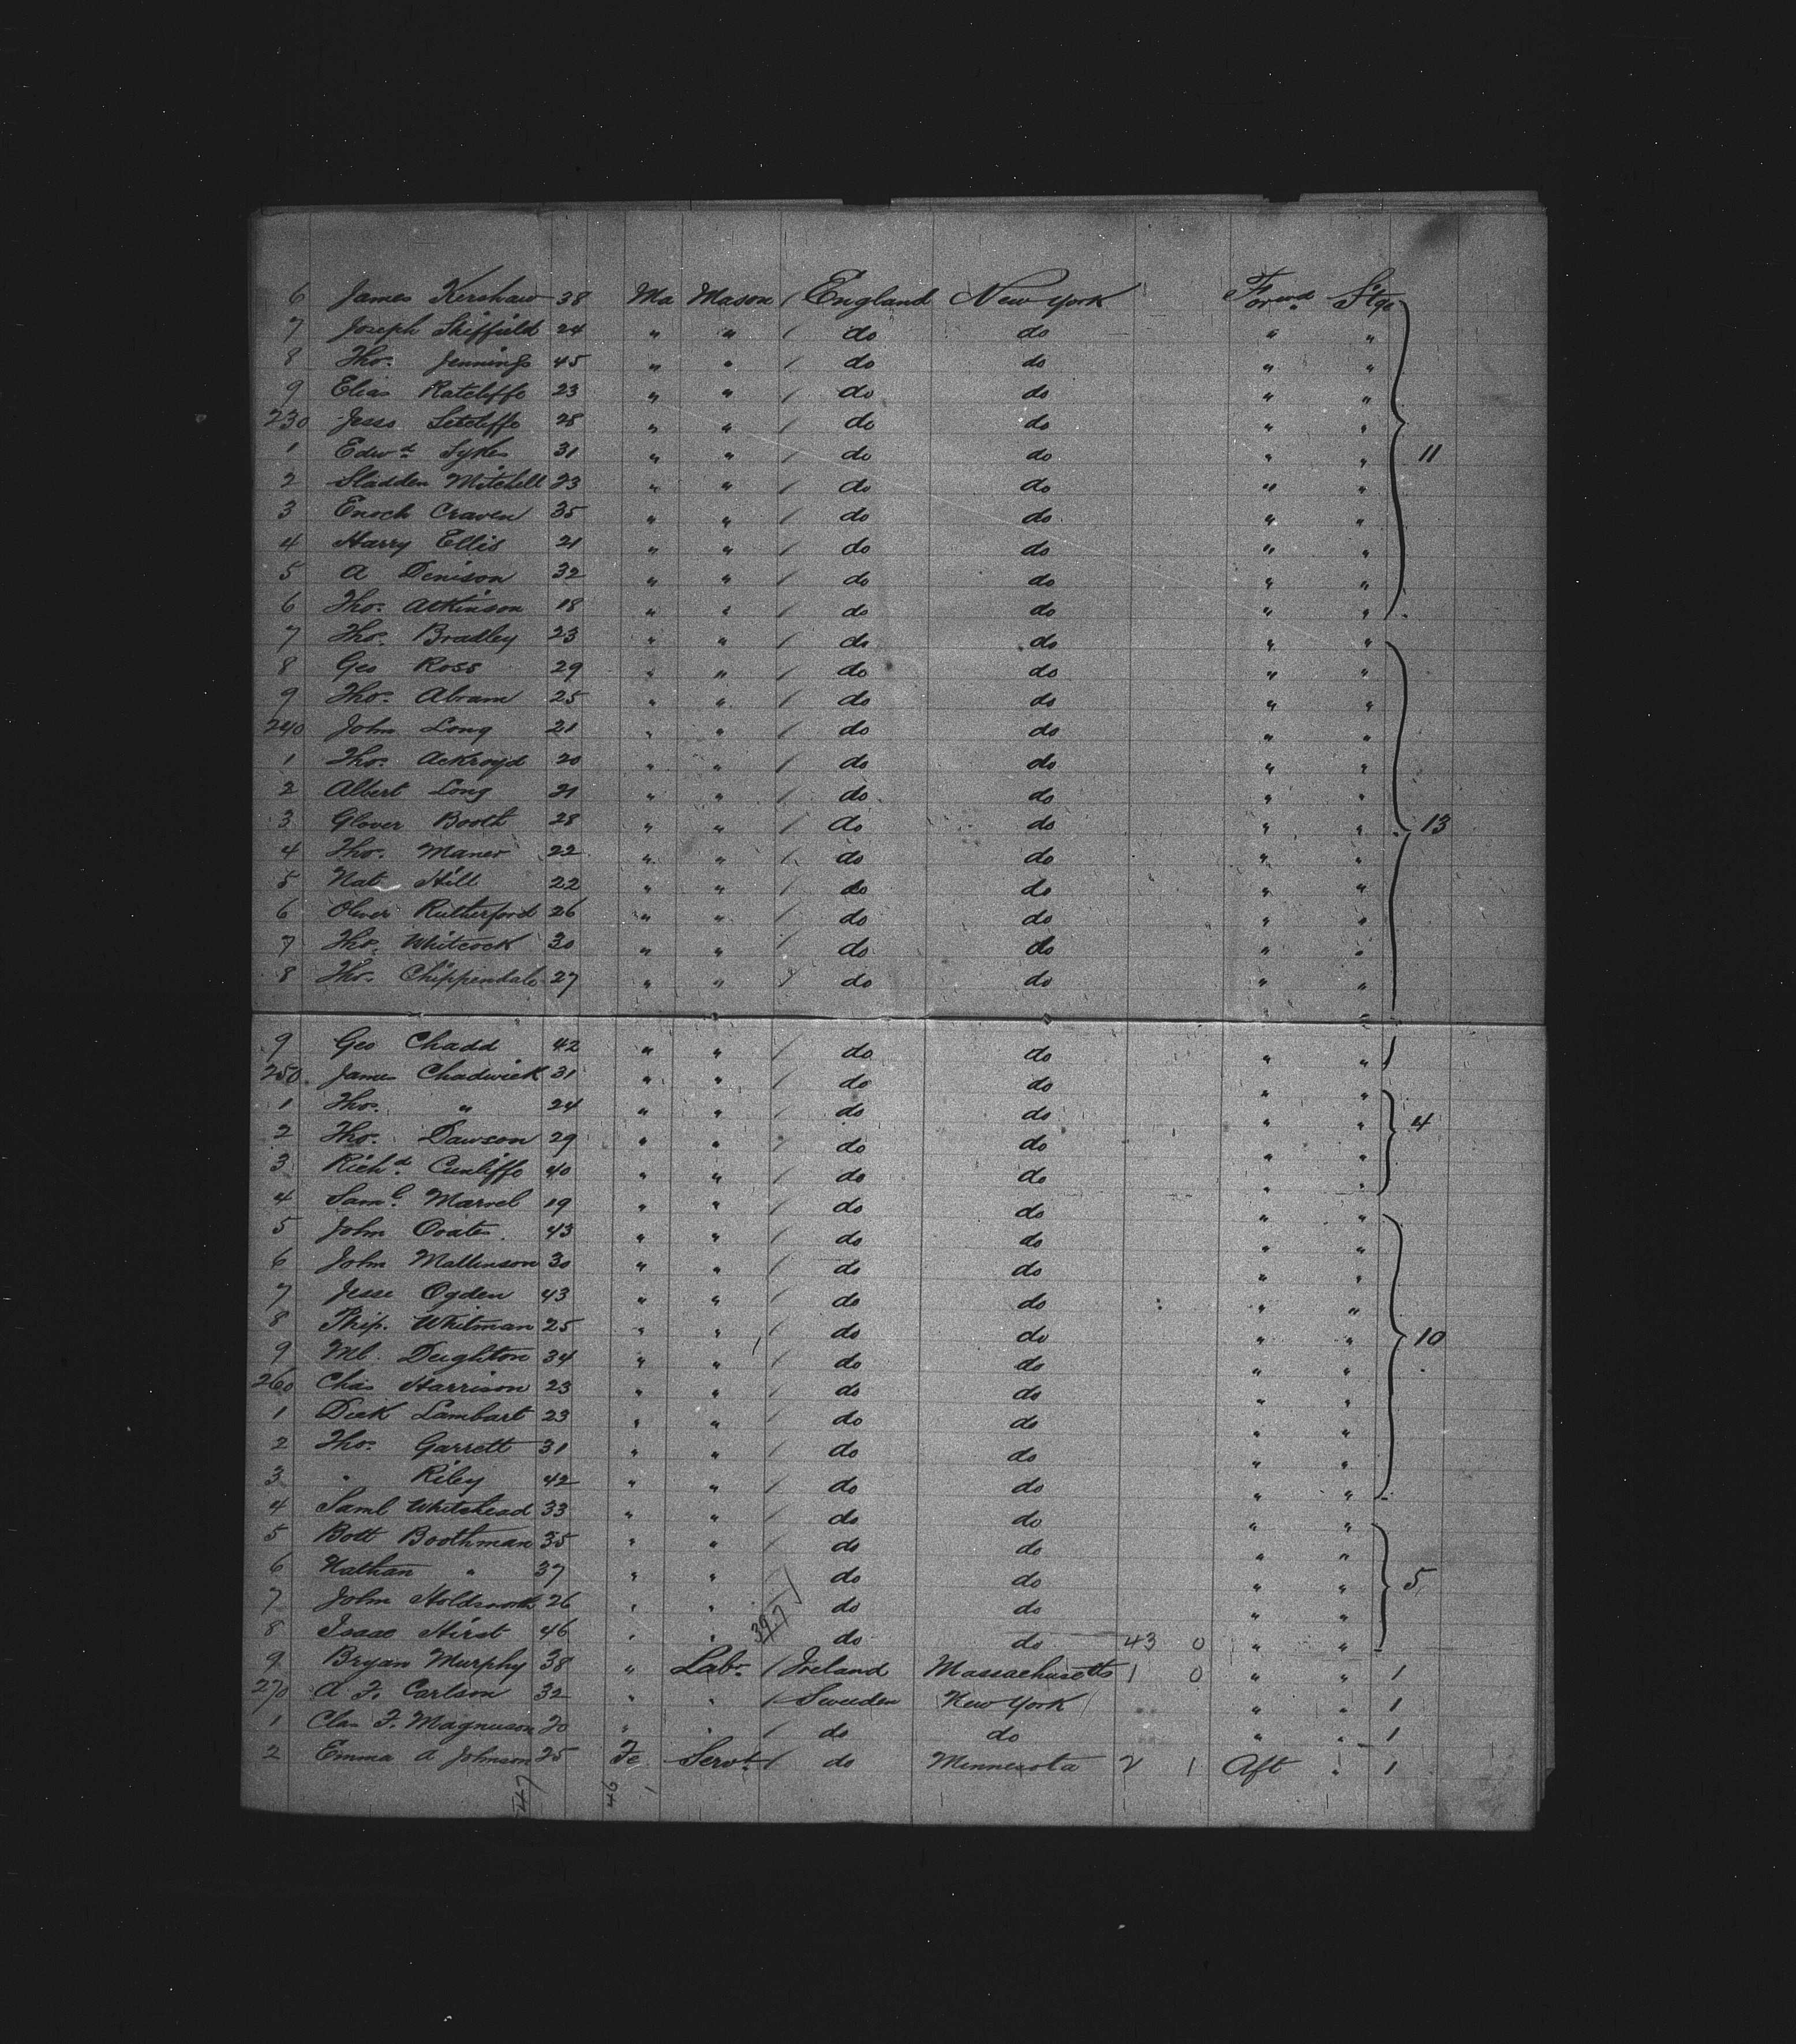 6 James Kershaw 38 Ma Mason / England New York Forwd Stge
7 Joseph Shiffield 24 " " / do do " "
8 Tho. Jennings 45 " " / do do " "
9 Elias Ratcliffe 23 " " / do do " "
230 Jesse Setcliffe 28 " " / do do " "
1 Edwd Sykes 31 " " / do do " " 11
2 Sladden Mitchell 23 " " / do do " "
3 Enoch Craven 35 " " / do do " "
4 Harry Ellis 21 " " / do do " "
5 A Denison 32 " " / do do " "
6 Tho. Atkinson 18 " " / do do " "
7 Tho. Bradley 23 " " / do do " "
8 Geo Ross 29 " " / do do " "
9 Tho. Abram 25 " " / do do " "
240 John Long 21 " " / do do " "
1 Tho. Ackroyd 20 " " / do do " "
2 Albert Long 21 " " / do do " "
3 Glover Booth 28 " " / do do " " 13
4 Tho. Maner 22 " " / do do " "
5 Nat Hill 22 " " / do do " "
6 Oliver Rutherford 26 " " / do do " "
7 Tho. Whitcock 30 " " / do do " "
8 Tho. Chippendale 27 " " / do do " "
9 Geo Chadd 42 " " / do do " "
250 James Chadwick 31 " " / do do " "
1 Tho. " 24 " " / do do " " 4
2 Tho. Dawson 29 " " / do do " "
3 Richd Cunliffe 40 " " / do do " "
4 Saml Marvel 19 " " / do do " "
5 John Ovates 43 " " / do do " "
6 John Mallinson 30 " " / do do " "
7 Jesse Ogden 43 " " / do do " "
8 Phip. Whitman 25 " " / do do " " 10
9 Ml. Deighton 34 " " / do do " "
260 Chas Harrison 23 " " / do do " "
1 Dick Lambart 23 " " / do do " "
2 Tho. Garrett 31 " " / do do " "
3 " Riley 42 " " / do do " "
4 Saml Whitehead 33 " " / do do " "
5 Bott Boothman 35 " " / do do " "
6 Nathan " 37 " " / do do " " 5
7 John Holdsworth 26 " " do do " "
8 Isaac Hirst 46 " " do do 43 0 " "
9 Bryan Murphy 38 " Labr / Ireland Massachusetts 1 0 " " 1
270 A. F. Carlson 32 " " / Sweden New York " " 1
1 Clas F. Magnuson 20 " " / do do " " 1
2 Emma A Johnson 25 Fe Servt / do Minnesota 2 1 Aft " 1
47 46 1